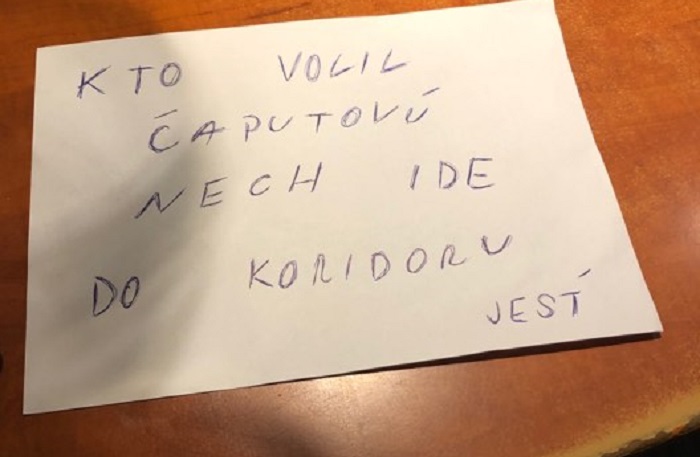 KTO VOLIL
ČAPUTOVÚ
NECH IDE
DO KORIDORU
JESŤ